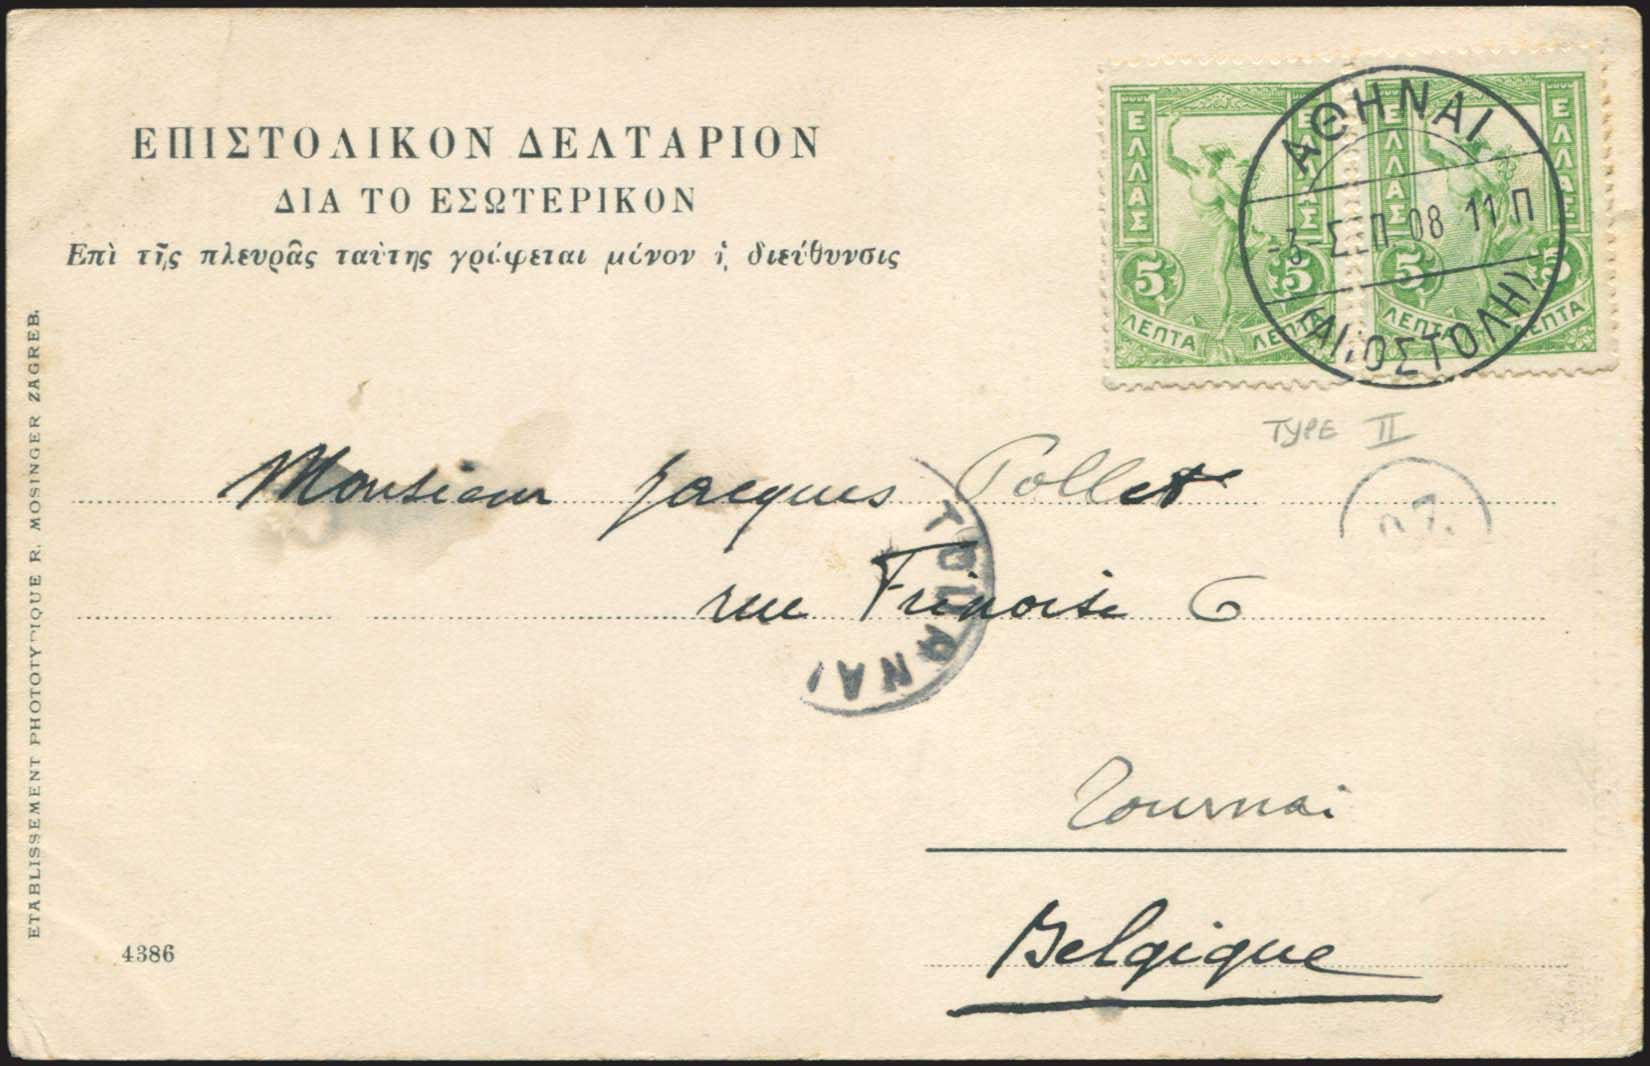 ΕΠΙΣΤΟΛΙΚΟΝ ΔΕΛΤΑΡΙΟΝ
ΔΙΑ ΤΟ ΕΣΩΤΕΡΙΚΟΝ
Επὶ τῆς πλευρᾶς ταύτης γράφεται μόνον ἡ διεύθυνσις
ΕΛΛΑΣ ΕΛΛΑΣ
5 5
ΛΕΠΤΑ ΛΕΠΤΑ
ΕΛΛΑΣ ΕΛΛΑΣ
5 5
ΛΕΠΤΑ ΛΕΠΤΑ
ΑΘΗΝΑΙ
-3-ΣΕΠ 08 11 Π
(ΑΠΟΣΤΟΛΗ)
TYPE II
Monsieur Jacques Pollet
rue Frinoise 6
TOURNAI
Tournai
Belgique
4386
ETABLISSEMENT PHOTOTYPIQUE R. MOSINGER ZAGREB.